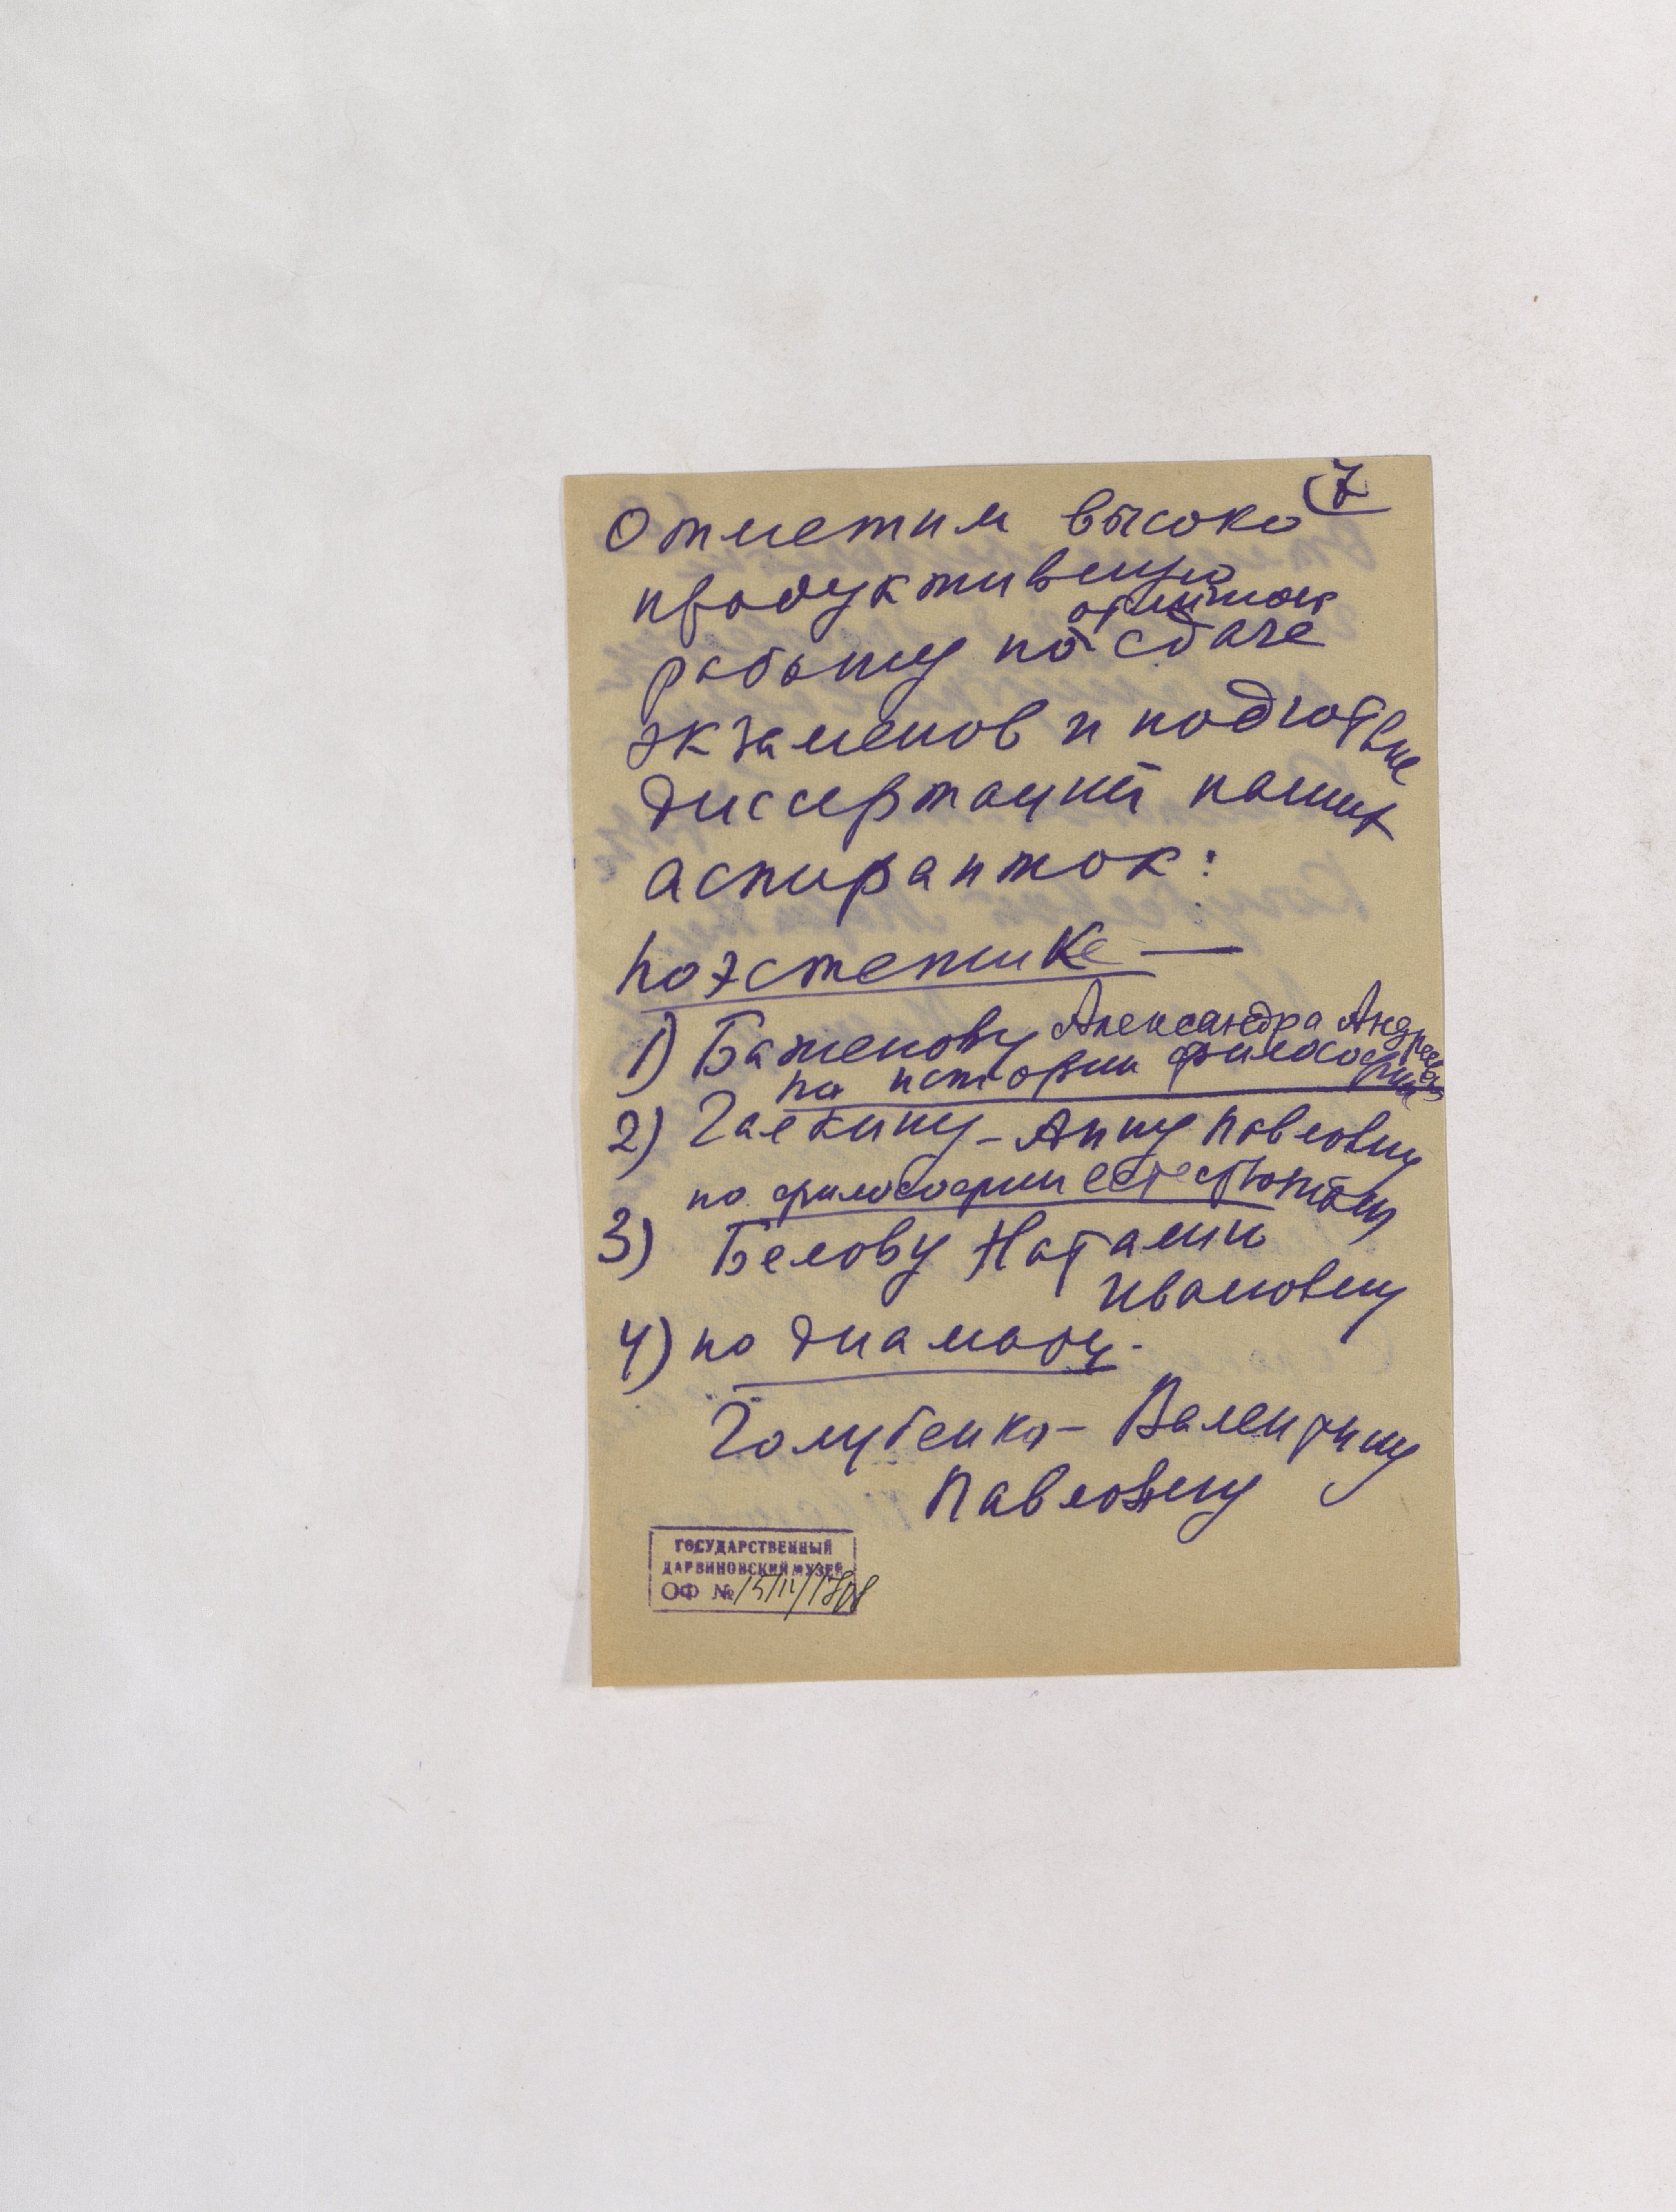 7
Отметим высоко
продуктивную
отлично
работу по сдаче
экзаменов и подготовке
диссертаций наших
аспиранток:
по эстетике —
1) Баженову Александра Андреев
по истории философии
2) Галкину - Анну Павловну
по философии естествозн
3) Белову Наталию
Ивановну
4) по диамату.
Голубенко - Валентину
Павловну
ГОСУДАРСТВЕННЫЙ
ДАРВИНОВСКИЙ МУЗЕЙ
ОФ №